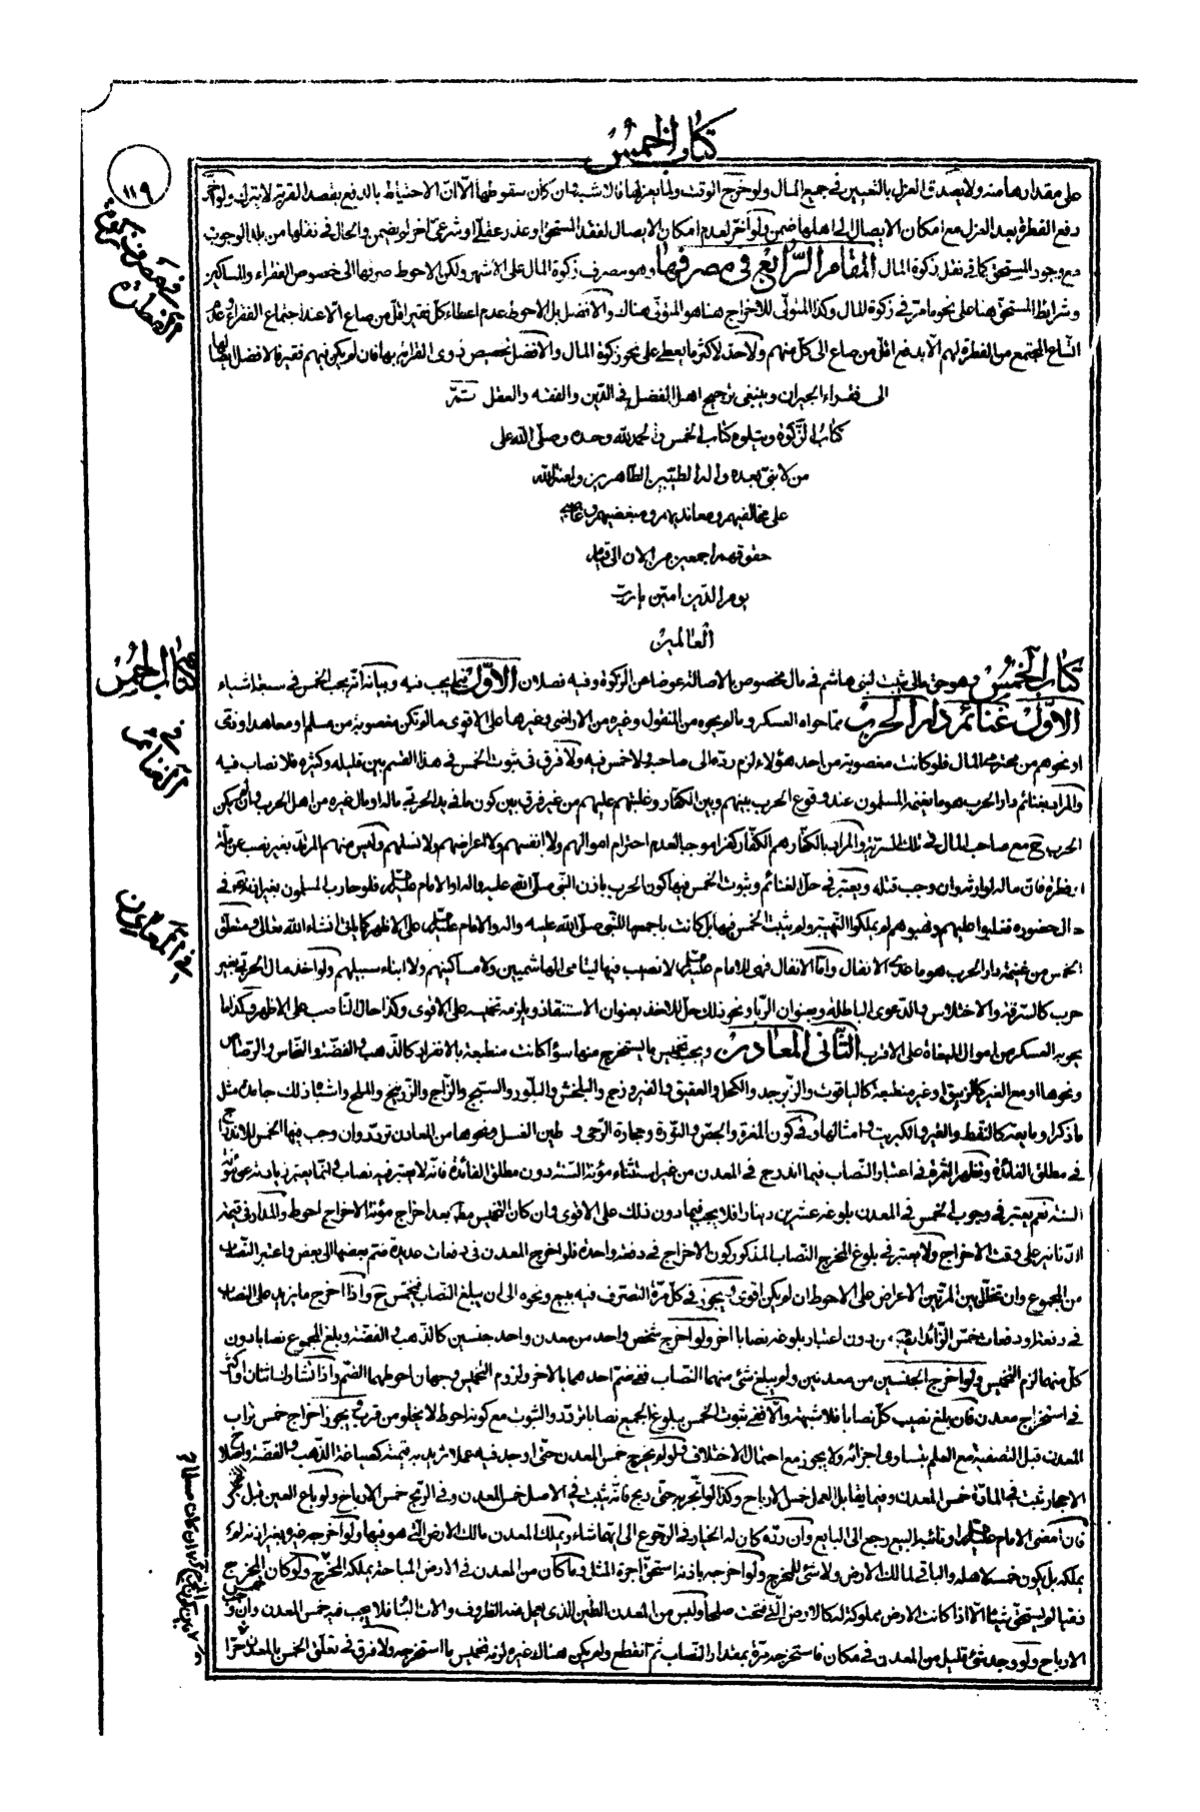 كتاب الخمس
١١٩
على مقدارها منه ولا يصدق العزل بالتعيين في جميع المال ولو خرج الوقت ولما يعزلها فلا شبهة ان كان سقوطها الا ان الاحتياط بالدفع بقصد القربة لا يترك ولو
دفع الفطرة بعد العزل مع امكان الايصال الى اهلها ضمن ولو اخر لعدم امكان الايصال لفقد المستحق او عذر عقلي او شرعي اخر لم يضمن والحال في نقلها من بلد الوجوب
مع وجود المستحق كما في نقل زكوة المال المقام الرابع في مصرفها وهو مصرف زكوة المال على الاشهر ولكن الاحوط صرفها الى خصوص الفقراء والمساكين
وشرائط المستحق هنا على نحو ما مر في زكوة المال وكذا المتولى للاخراج هنا هو المتولى هناك والافضل بل الاحوط عدم اعطاء كل فقير اقل من صاع الا عند اجتماع الفقراء وعدم
اتساع المجتمع من الفطرة لهم الا بدفع اقل من صاع الى كل منهم ولا حد لاكثر ما يعطى على نحو زكوة المال والافضل تخصيص ذوى القرابة بها فان لم يكن فيهم فقير فالافضل ايصالها
الى فقراء الجيران وينبغي ترجيح اهل الفضل في الدين والفقه والعقل تم
كتاب الزكوة ويتلوه كتاب الخمس والحمد لله وحده وصلى الله على
من لا نبي بعده واله الطيبين الطاهرين ولعنة الله
على مخالفيهم ومعانديهم ومبغضيهم وغاصبي
حقوقهم اجمعين من الان الى قيام
يوم الدين امين يا رب
العالمين
كتاب الخمس وهو حق مالي يثبت لبني هاشم في مال مخصوص بالاصالة عوضا عن الزكوة وفيه فصلان الاول فيما يجب فيه وبيانه انه يجب الخمس في سبعة اشياء
الاول غنائم دار الحرب مما حواه العسكر وما لم يحوه من المنقول وغيره من الاراضي وغيرها على الاقوى ما لم تكن مغصوبة من مسلم او معاهد او ذمي
او نحوهم من محترمي المال فلو كانت مغصوبة من احد هؤلاء لزم رده الى صاحبه ولا خمس فيه ولا فرق في ثبوت الخمس في هذا القسم بين قليله وكثيره فلا نصاب فيه
والمراد بغنائم دار الحرب هو ما يغنمه المسلمون عند وقوع الحرب بينهم وبين الكفار وغلبتهم عليهم من غير فرق بين كون ما في يد الحربي ماله او مال غيره من اهل الحرب وان لم يكن
الحرب ح مع صاحب المال في تلك المرة والمراد بالكفار هم الكفار كفرا موجبا لعدم احترام اموالهم ولا انفسهم ولا اعراضهم ولا نسلهم وليس منهم المرتد
فطرة فان ماله لوارثه وان وجب قتله ويعتبر في حل الغنائم وثبوت الخمس فيها كون الحرب باذن النبي صلى الله عليه واله او الامام عليه السلام فلو حارب المسلمون بغير اذنه في
حال حضوره فغلبوا عليهم ونهبوهم لم يملكوا النهيبة ولم يثبت الخمس فيها بل كانت باجمعها للنبي صلى الله عليه واله والامام عليه السلام على الاظهر كما ياتي انشاء الله تعالى ومتعلق
الخمس من غنيمة دار الحرب هو ما عدى الانفال واما الانفال فهي للامام عليه السلام لا نصيب فيها ليتامى الهاشميين ولا مساكينهم ولا ابناء سبيلهم ولو اخذ مال الحربي بغير
حرب كالسرقة والاختلاس والدعوى الباطلة وبعنوان الربا ونحو ذلك حل للاخذ بعنوان الاستنقاذ ويلزمه تخميسه على الاقوى وكذا حال الناصب على الاظهر وكذا ما
يحويه العسكر من اموال البغاة على الاقرب الثاني المعادن ويجب تخميس ما يستخرج منها سواء كانت منطبعة بالانفراد كالذهب والفضة والنحاس والرصاص
ونحوها او مع الغير كالزيبق او غير منطبعة كالياقوت والزبرجد والكحل والعقيق والفيروزج والبلخش والبلور والسبج والزاج والزرنيخ والملح واشباه ذلك جامدة مثل
ما ذكر او مايعة كالنفط والقير والكبريت وامثالها وفي كون المغرة والجص والنورة وحجارة الرحى وطين الغسل ونحوها من المعادن تردد وان وجب فيها الخمس للاندراج
في مطلق الفائدة وتظهر الثمرة في اعتبار النصاب فيما اندرج في المعدن من غير استثناء مؤنة السنة دون مطلق الفائدة فانه لا يعتبر فيه نصاب وانما يعتبر زيادته عن مؤنة
السنة نعم يعتبر في وجوب الخمس في المعدن بلوغه عشرين دينارا فلا يجب فيما دون ذلك على الاقوى وان كان التخميس مطلقا بعد اخراج مؤنة الاخراج احوط والمدار في قيمة
الدنانير على وقت الاخراج ولا يعتبر في بلوغ المخرج النصاب المذكور كون الاخراج في دفعة واحدة فلو اخرج المعدن في دفعات عديدة ضم بعضها الى بعض واعتبر النصاب
من المجموع وان تخلل بين المرتين الاعراض على الاحوط ان لم يكن اقوى ويجوز في كل مرة التصرف فيه ببيع ونحوه الى ان يبلغ النصاب فيخمس ح واذا اخرج ما يزيد على النصاب
في دفعة او دفعات خمس الزائد من دون اعتبار بلوغه نصابا اخر ولو اخرج شخص واحد من معدن واحد جنسين كالذهب والفضة وبلغ المجموع نصابا دون
كل منهما لزم التخميس ولو اخرج الجنسين من معدنين ولم يبلغ شئ منهما النصاب ففي ضم احدهما بالاخر ولزوم التخميس وجهان احوطهما الضم واذا تشارك اثنان او اكثر
في استخراج معدن فان بلغ نصيب كل نصابا فلا شبهة والا ففي ثبوت الخمس ببلوغ الجميع نصابا تردد والثبوت مع كونه احوط لا يخلو من قرب ويجوز اخراج خمس تراب
المعدن قبل التصفية مع العلم بتساوى اجزائه ولا يجوز مع احتمال الاختلاف ولو لم يخرج خمس المعدن حتى اوجد فيه عملا تزيد به قيمته كصياغة الذهب والفضة واصلاح
الاحجار ثبت في المادة خمس المعدن وفيما يقابل العمل خمس الارباح وكذا لو اتجر به حتى ربح فانه يثبت في الاصل خمس المعدن وفي الربح خمس الارباح ولو باع العين قبل
فان امضى الامام عليه السلام او نائبه البيع رجع الى البايع وان رده كان له الخيار في الرجوع الى ايهما شاء ويملك المعدن مالك الارض التي هو فيها ولو اخرجه غيره بغير اذنه لم
يملكه بل يكون خمسه لاهله والباقي لمالك الارض ولا شئ للمخرج ولو اخرجه باذنه استحق اجرة المثل وما كان من المعدن في الارض المباحة يملكه المخرج ولو كان المخرج
ذميا لم يستحق شيئا الا اذا كانت الارض مملوكة له كالارض التي فتحت صلحا وليس من المعدن الطين الذي يعمل منه الظروف والات البناء فلا يجب فيه خمس المعدن وان وجب خمس
الارباح ولو وجد شئ قليل من المعدن في مكان فاستخرجه مرة بمقدار النصاب ثم انقطع ولم يكن هناك غيره لزمه تخميس ما استخرجه ولا فرق في تعلق الخمس بالمعادن
في مصرف زكوة
الفطرة
كتاب الخمس
في
الغنائم
في المعادن